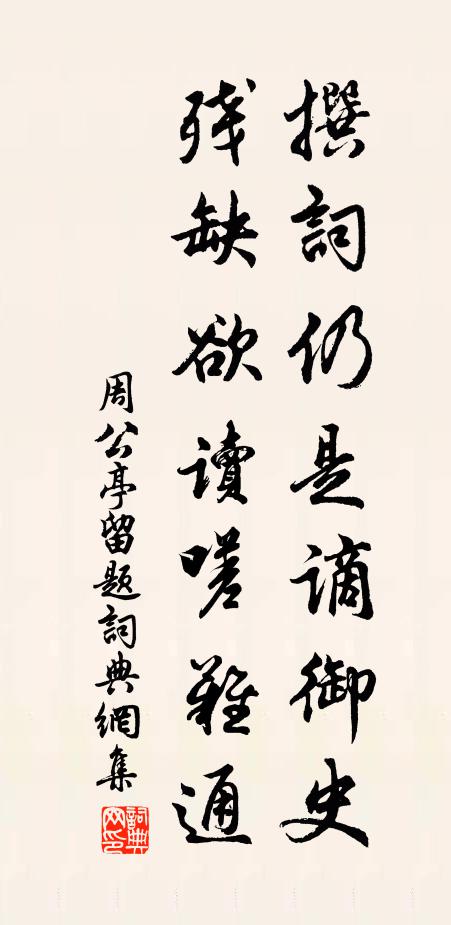 撰詞仍是謫御史
残缺欲讀嗟難通
周公亭留题詞典網集
詞典網印